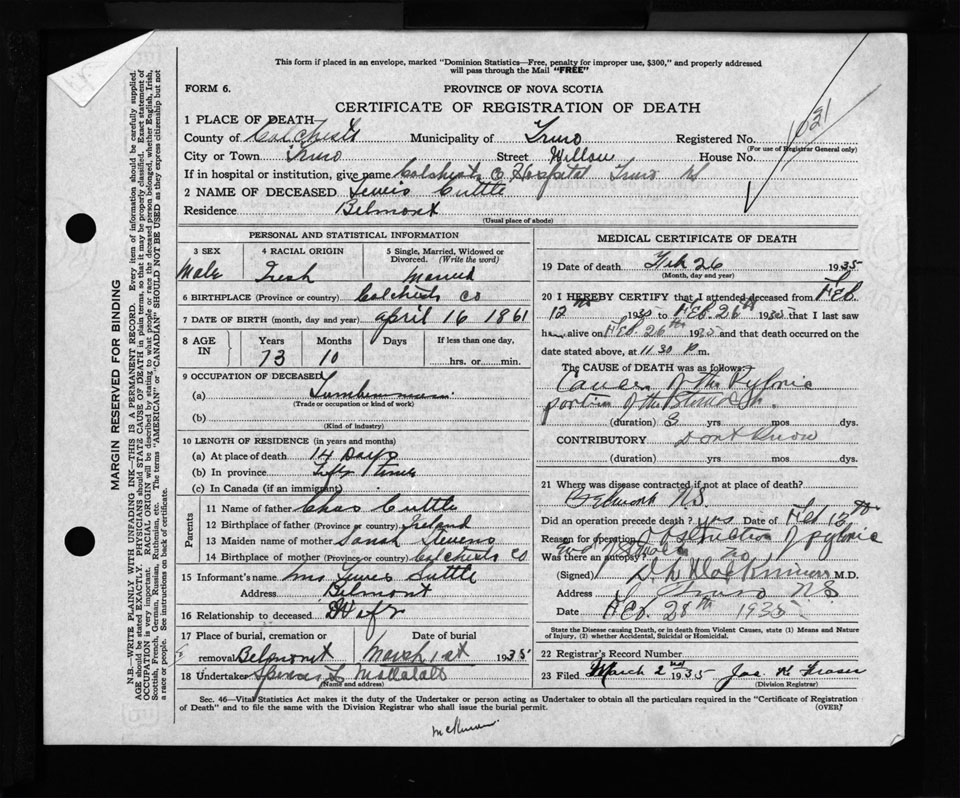 This form if placed in an envelope, marked "Dominion Statistics—Free, penalty for improper use, $300," and properly addressed
will pass through the Mail "FREE"
FORM 6. PROVINCE OF NOVA SCOTIA
CERTIFICATE OF REGISTRATION OF DEATH
1 PLACE OF DEATH—
County of Colchester Municipality of Truro Registered No.
(For use of Registrar General only)
City or Town Truro Street Willow House No.
If in hospital or institution, give name Colchester Co Hospital Truro
2 NAME OF DECEASED Lewis Cuttle
Residence Belmont
(Usual place of abode)
PERSONAL AND STATISTICAL INFORMATION
3 SEX 4 RACIAL ORIGIN 5 Single, Married, Widowed or
Divorced. (Write the word)
Male Irish Married
6 BIRTHPLACE (Province or country) Colchester Co
7 DATE OF BIRTH (month, day and year) april 16 1861
8 AGE IN Years Months Days If less than one day,
73 10 hrs. or min.
9 OCCUPATION OF DECEASED
(a) Lumberman
(Trade or occupation or kind of work)
(b)
(Kind of industry)
10 LENGTH OF RESIDENCE (in years and months)
(a) At place of death 14 Days
(b) In province Life time
(c) In Canada (if an immigrant)
Parents
11 Name of father Chas Cuttle
12 Birthplace of father (Province or country) Ireland
13 Maiden name of mother Sarah Stevens
14 Birthplace of mother (Province or country) Colchester Co
15 Informant's name Mrs Lewis Cuttle
Address Belmont
16 Relationship to deceased Wife
17 Place of burial, cremation or Date of burial
removal Belmont March 1st 1935
18 Undertaker Spencer &
(Name and address)
MEDICAL CERTIFICATE OF DEATH
19 Date of death Feb 26 1935
(Month, day and year)
20 I HEREBY CERTIFY that I attended deceased from Feb.
12 1935 to Feb. 26th 1935 that I last saw
h alive on Feb. 26th 1935 and that death occurred on
date stated above, at 11 30 P.m.
The CAUSE OF DEATH was as follows:
Cancer of the Pyloric
portion of the Stomach.
(duration) 3 yrs mos dys.
CONTRIBUTORY Dont Know
(duration) yrs mos dys.
21 Where was disease contracted if not at place of death?
Belmont N.S.
Did an operation precede death? yes Date of Feb 13th
Reason for operation Obstruction of pyloric
end of Stomach
Was there an autopsy? no
(Signed) M.D.
Address Truro N.S.
Date Feb. 28th 1935
State the Disease causing Death, or in death from Violent Causes, state (1) Means and Nature
of Injury, (2) whether Accidental, Suicidal or Homicidal.
22 Record Registrar Number
23 Filed March 2nd 1935 Jas Fraser
(Division Registrar)
Sec. 46—Vital Statistics Act makes it the duty of the Undertaker or person acting as Undertaker to obtain all the particulars required in the "Certificate of Registration
of Death" and to file the same with the Division Registrar who shall issue the burial permit. (OVER)
MARGIN RESERVED FOR BINDING
N.B.—WRITE PLAINLY WITH UNFADING INK—THIS IS A PERMANENT RECORD. Every item of information should be carefully supplied.
AGE should be stated EXACTLY. PHYSICIANS should STATE CAUSE OF DEATH in plain terms, so that it may be properly classified. Exact statement of
OCCUPATION is very important. RACIAL ORIGIN will be described by stating to what people or race the deceased person belonged, whether English, Irish,
Scottish, French, German, Russian, Ruthenian, etc. The terms "AMERICAN" or "CANADIAN" SHOULD NOT BE USED as they express citizenship but not
a race or people. See instructions on back of certificate.